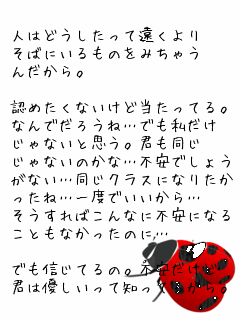 人はどうしたって遠くより
そばにいるものをみちゃう
んだから。
認めたくないけど当たってる。
なんでだろうね…でも私だけ
じゃないと思う。君も同じ
じゃないのかな…不安でしょう
がない…同じクラスになりたか
ったね…一度でいいから…
そうすればこんなに不安になる
こともなかったのに…
でも信じてるの。不安だけど
君は優しいって知ってるから。